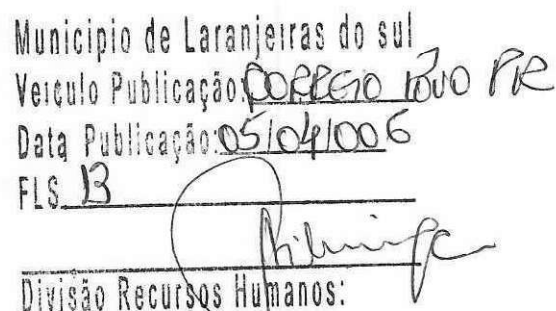 Municipio de Laranjeiras do sul
Veículo Publicação: CORREIO POVO PR
Data Publicação: 05/04/006
FLS. 13
Divisão Recursos Humanos: